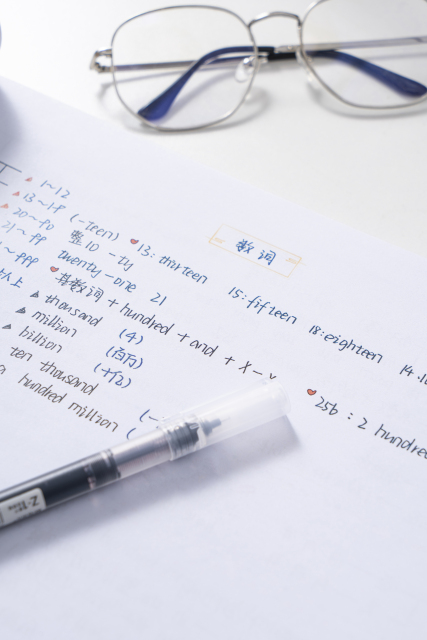 数词
1~12
13~19 (-teen) 13: thirteen 15: fifteen 18: eighteen 14
20~90 整10 -ty
21~99 twenty-one 21
~999 基数词 + hundred + and + X-X 256: 2 hundred
以上
thousand (千)
million (百万)
billion (十亿)
ten thousand
hundred million